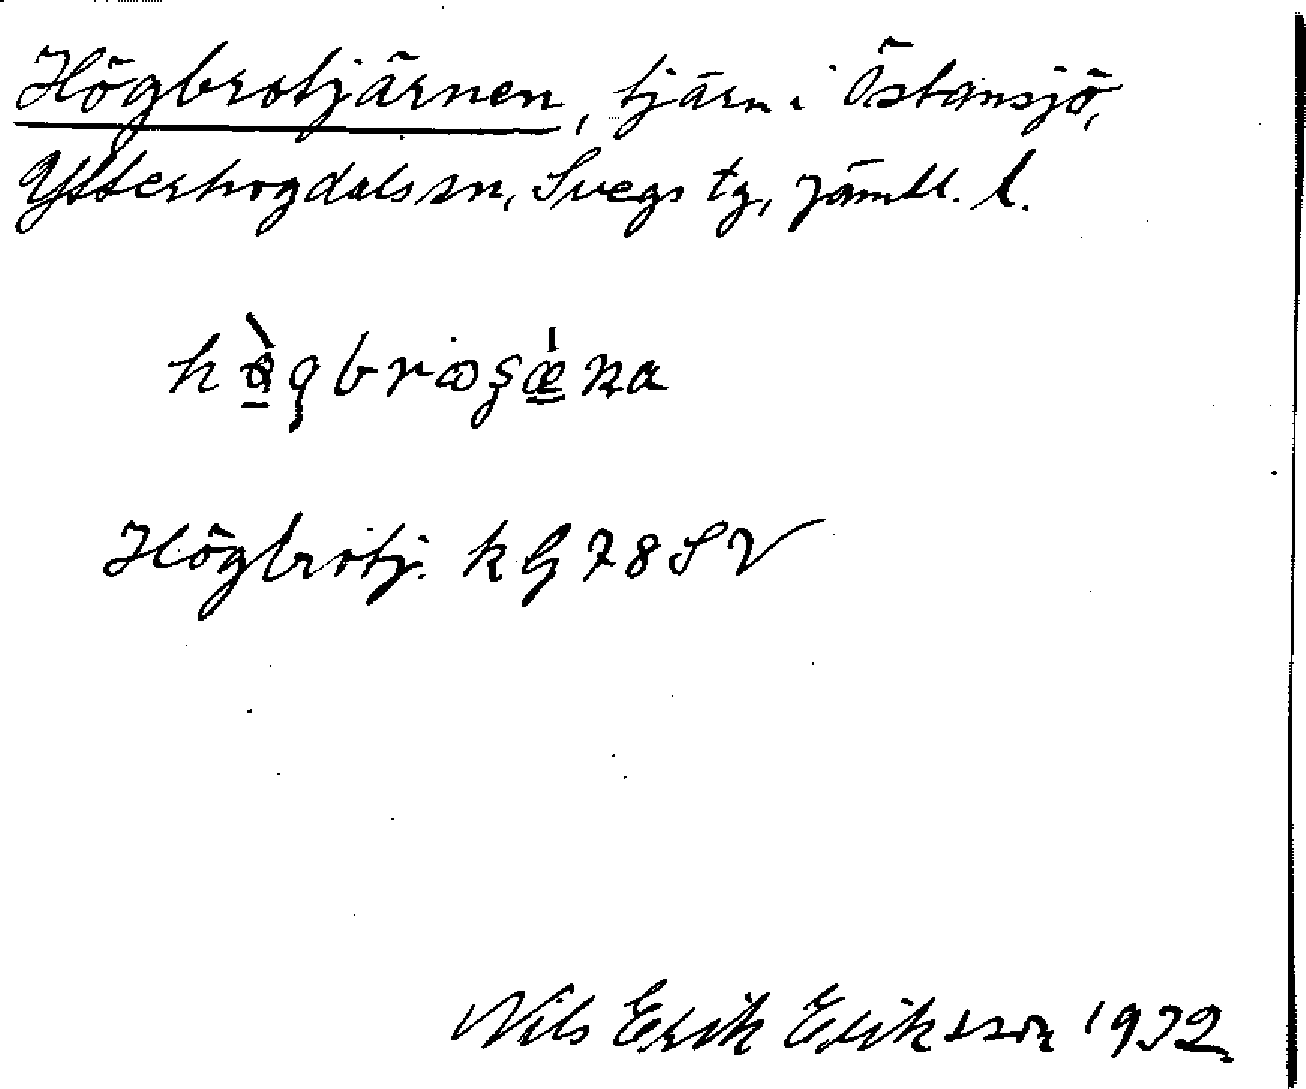 Högbrotjärnen, tjärn i Östansjö,
Ytterhogdals sn, Svegs tg, Jämtl. l.
Högbrotj. k G 78 SV
Nils Erik Eriksson 1932